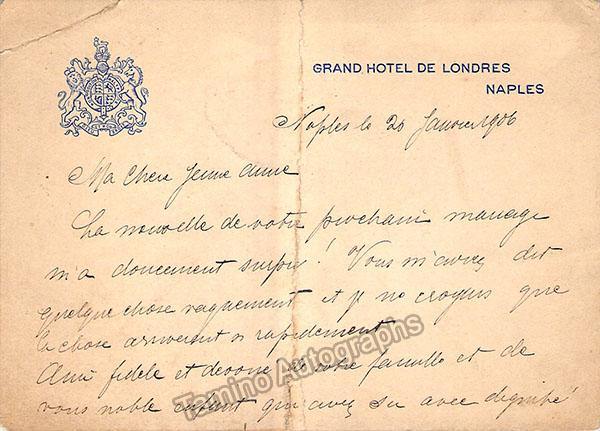 GRAND HOTEL DE LONDRES
NAPLES
Naples le 20 Janvier 1906
Ma Chere Jeune Amie
La nouvelle de votre prochain mariage
m'a doucement surpris! Vous m'aviez dit
quelque chose vaguement et je ne croyais que
la chose arriverait si rapidement
Ami fidele et devoué de votre famille et de
vous noble enfant qui avez su avec dignité
Tamino Autographs